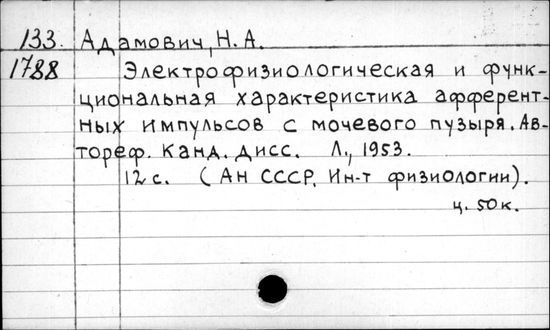 133. Адамович, Н. А.
1788 Электрофизиологическая и функ-
циональная характеристика афферент-
ных импульсов с мочевого пузыря. Ав-
тореф. канд. дисс. Л., 1953.
12 с. (АН СССР. Ин-т физиологии).
ц. 50 к.